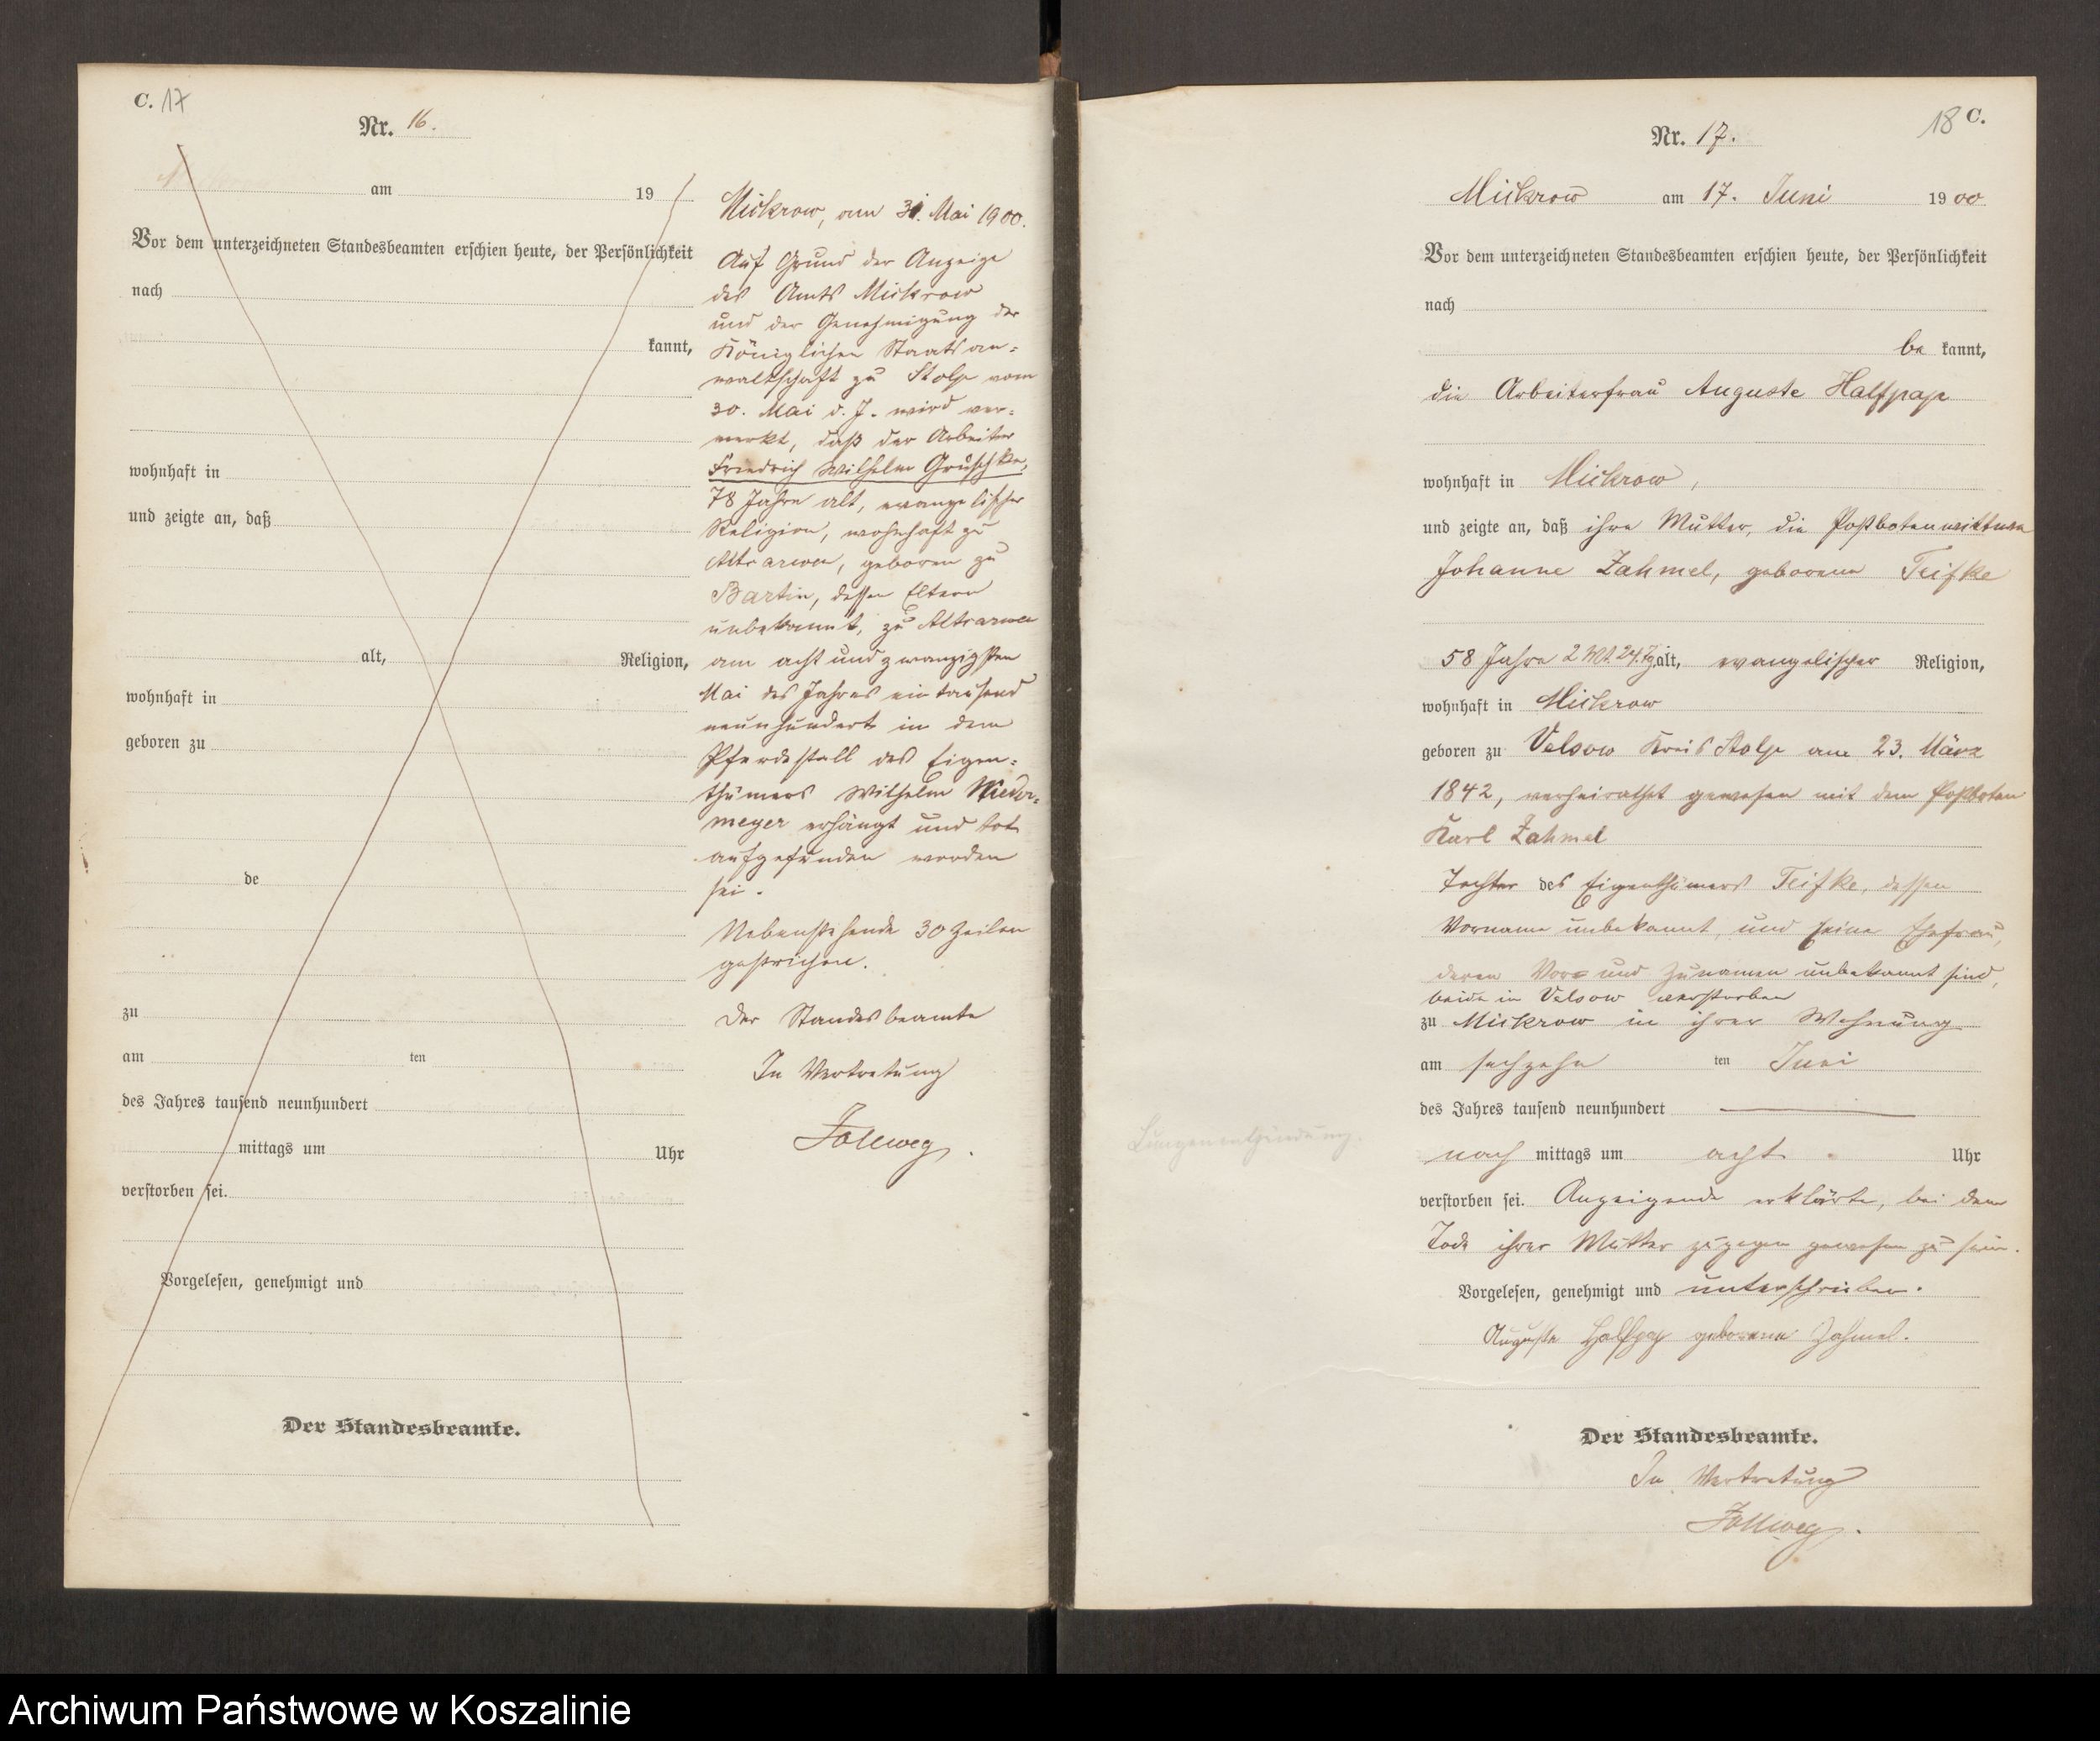 C. 17
Nr. 16.
am 19
Vor dem unterzeichneten Standesbeamten erschien heute, der Persönlichkeit
nach
kannt,
wohnhaft in
und zeigte an, daß
alt, Religion,
wohnhaft in
geboren zu
de
zu
am ten
des Jahres tausend neunhundert
mittags um Uhr
verstorben sei.
Vorgelesen, genehmigt und
Der Standesbeamte.
Mickrow, am 31. Mai 1900.
Auf Grund der Anzeige
des Amts Mickrow
und der Genehmigung der
Königlichen Staatsan=
waltschaft zu Stolp vom
30. Mai d. J. wird ver=
merkt, daß der Arbeiter
Friedrich Wilhelm Gruschke,
78 Jahre alt, evangelischer
Religion, wohnhaft zu
geboren zu
Bartin, dessen Eltern
unbekannt, zu
am acht und zwanzigsten
Mai des Jahres ein tausend
neunhundert in dem
Pferdestall des Eigen=
thümers Wilhelm Nieder=
meyer erhängt und tot
aufgefunden worden
sei.
Nebenstehende 30 Zeilen
gestrichen.
Der Standesbeamte
In Vertretung
Follweg.
18 C.
Nr. 17.
Mickrow am 17. Juni 1900
Vor dem unterzeichneten Standesbeamten erschien heute, der Persönlichkeit
nach
be kannt,
die Arbeiterfrau Auguste Halfpap
wohnhaft in Mickrow,
und zeigte an, daß ihre Mutter, die Postbotenwittwe
Johanne Zahmel, geborene Teifke
58 Jahre 2 Mt. 24 Tg. alt, evangelischer Religion,
wohnhaft in Mickrow
geboren zu Velsow Kreis Stolp am 23. März
1842, verheirathet gewesen mit dem Postboten
Karl Zahmel
Tochter des Eigenthümers Teifke, dessen
Vorname unbekannt, und seine Ehefrau,
deren Vor= und Zunamen unbekannt sind,
beide in Velsow verstorben
zu Mickrow in ihrer Wohnung
am sechzehn ten Juni
des Jahres tausend neunhundert
Lungenentzündung.
nach mittags um acht Uhr
verstorben sei. Anzeigende erklärte, bei dem
Tode ihrer Mutter zugegen gewesen zu sein.
Vorgelesen, genehmigt und unterschrieben.
Auguste Halfpap geborene Zahmel.
Der Standesbeamte.
In Vertretung
Follweg.
Archiwum Państwowe w Koszalinie